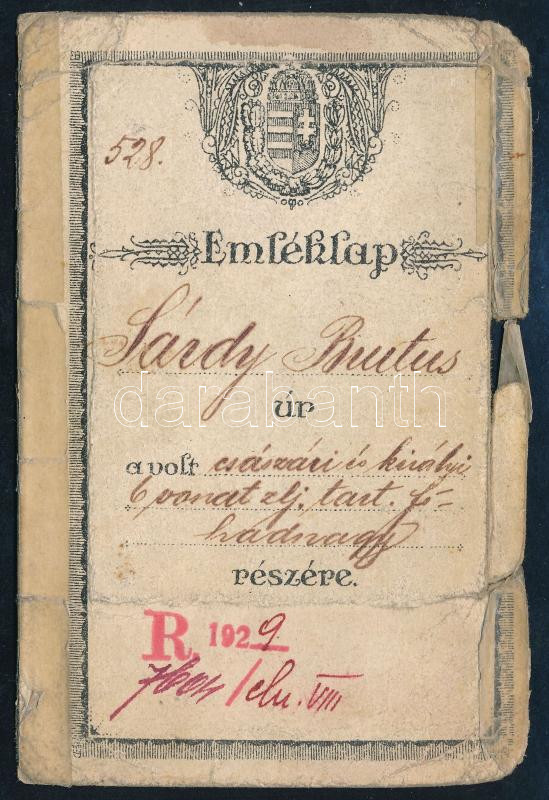 528.
Emléklap
Sárdy Brutus
úr
a volt császári és királyi
6 vonat zlj. tart. fő-
hadnagy
részére.
R. 1929
/eln. VIII
darabanth